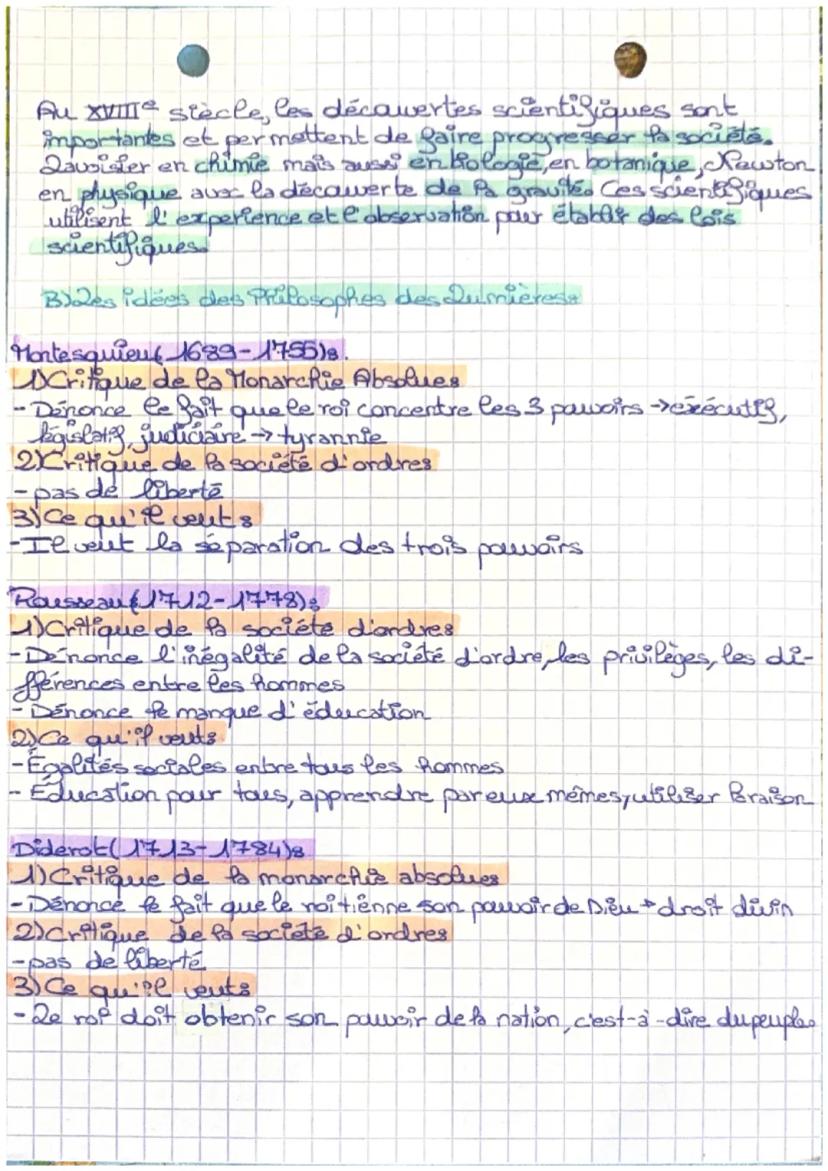 Au XVIIIe siècle, les découvertes scientifiques sont
importantes et permettent de faire progresser la société.
Lavoisier en chimie mais aussi en biologie, en botanique, Newton
en physique avec la découverte de la gravité. Ces scientifiques
utilisent l'experience et l'observation pour établir des lois
scientifiques.
B) Les idées des Philosophes des Lumières:
Montesquieu (1689-1755):
1) Critique de la Monarchie Absolue:
- Dénonce le fait que le roi concentre les 3 pouvoirs → exécutif,
législatif, judiciaire → tyrannie
2) Critique de la société d'ordres
- pas de liberté
3) Ce qu'il veut:
- Il veut la séparation des trois pouvoirs
Rousseau (1712-1778):
1) Critique de la société d'ordres
- Dénonce l'inégalité de la société d'ordre, les privilèges, les di-
fférences entre les hommes
- Dénonce le manque d'éducation
2) Ce qu'il veut:
- Égalités sociales entre tous les hommes
- Éducation pour tous, apprendre par eux mêmes, utiliser la raison
Diderot (1713-1784):
1) Critique de la monarchie absolue:
- Dénonce le fait que le roi tienne son pouvoir de Dieu → droit divin
2) Critique de la société d'ordres
- pas de liberté
3) Ce qu'il veut:
- Le roi doit obtenir son pouvoir de la nation, c'est-à-dire du peuple.